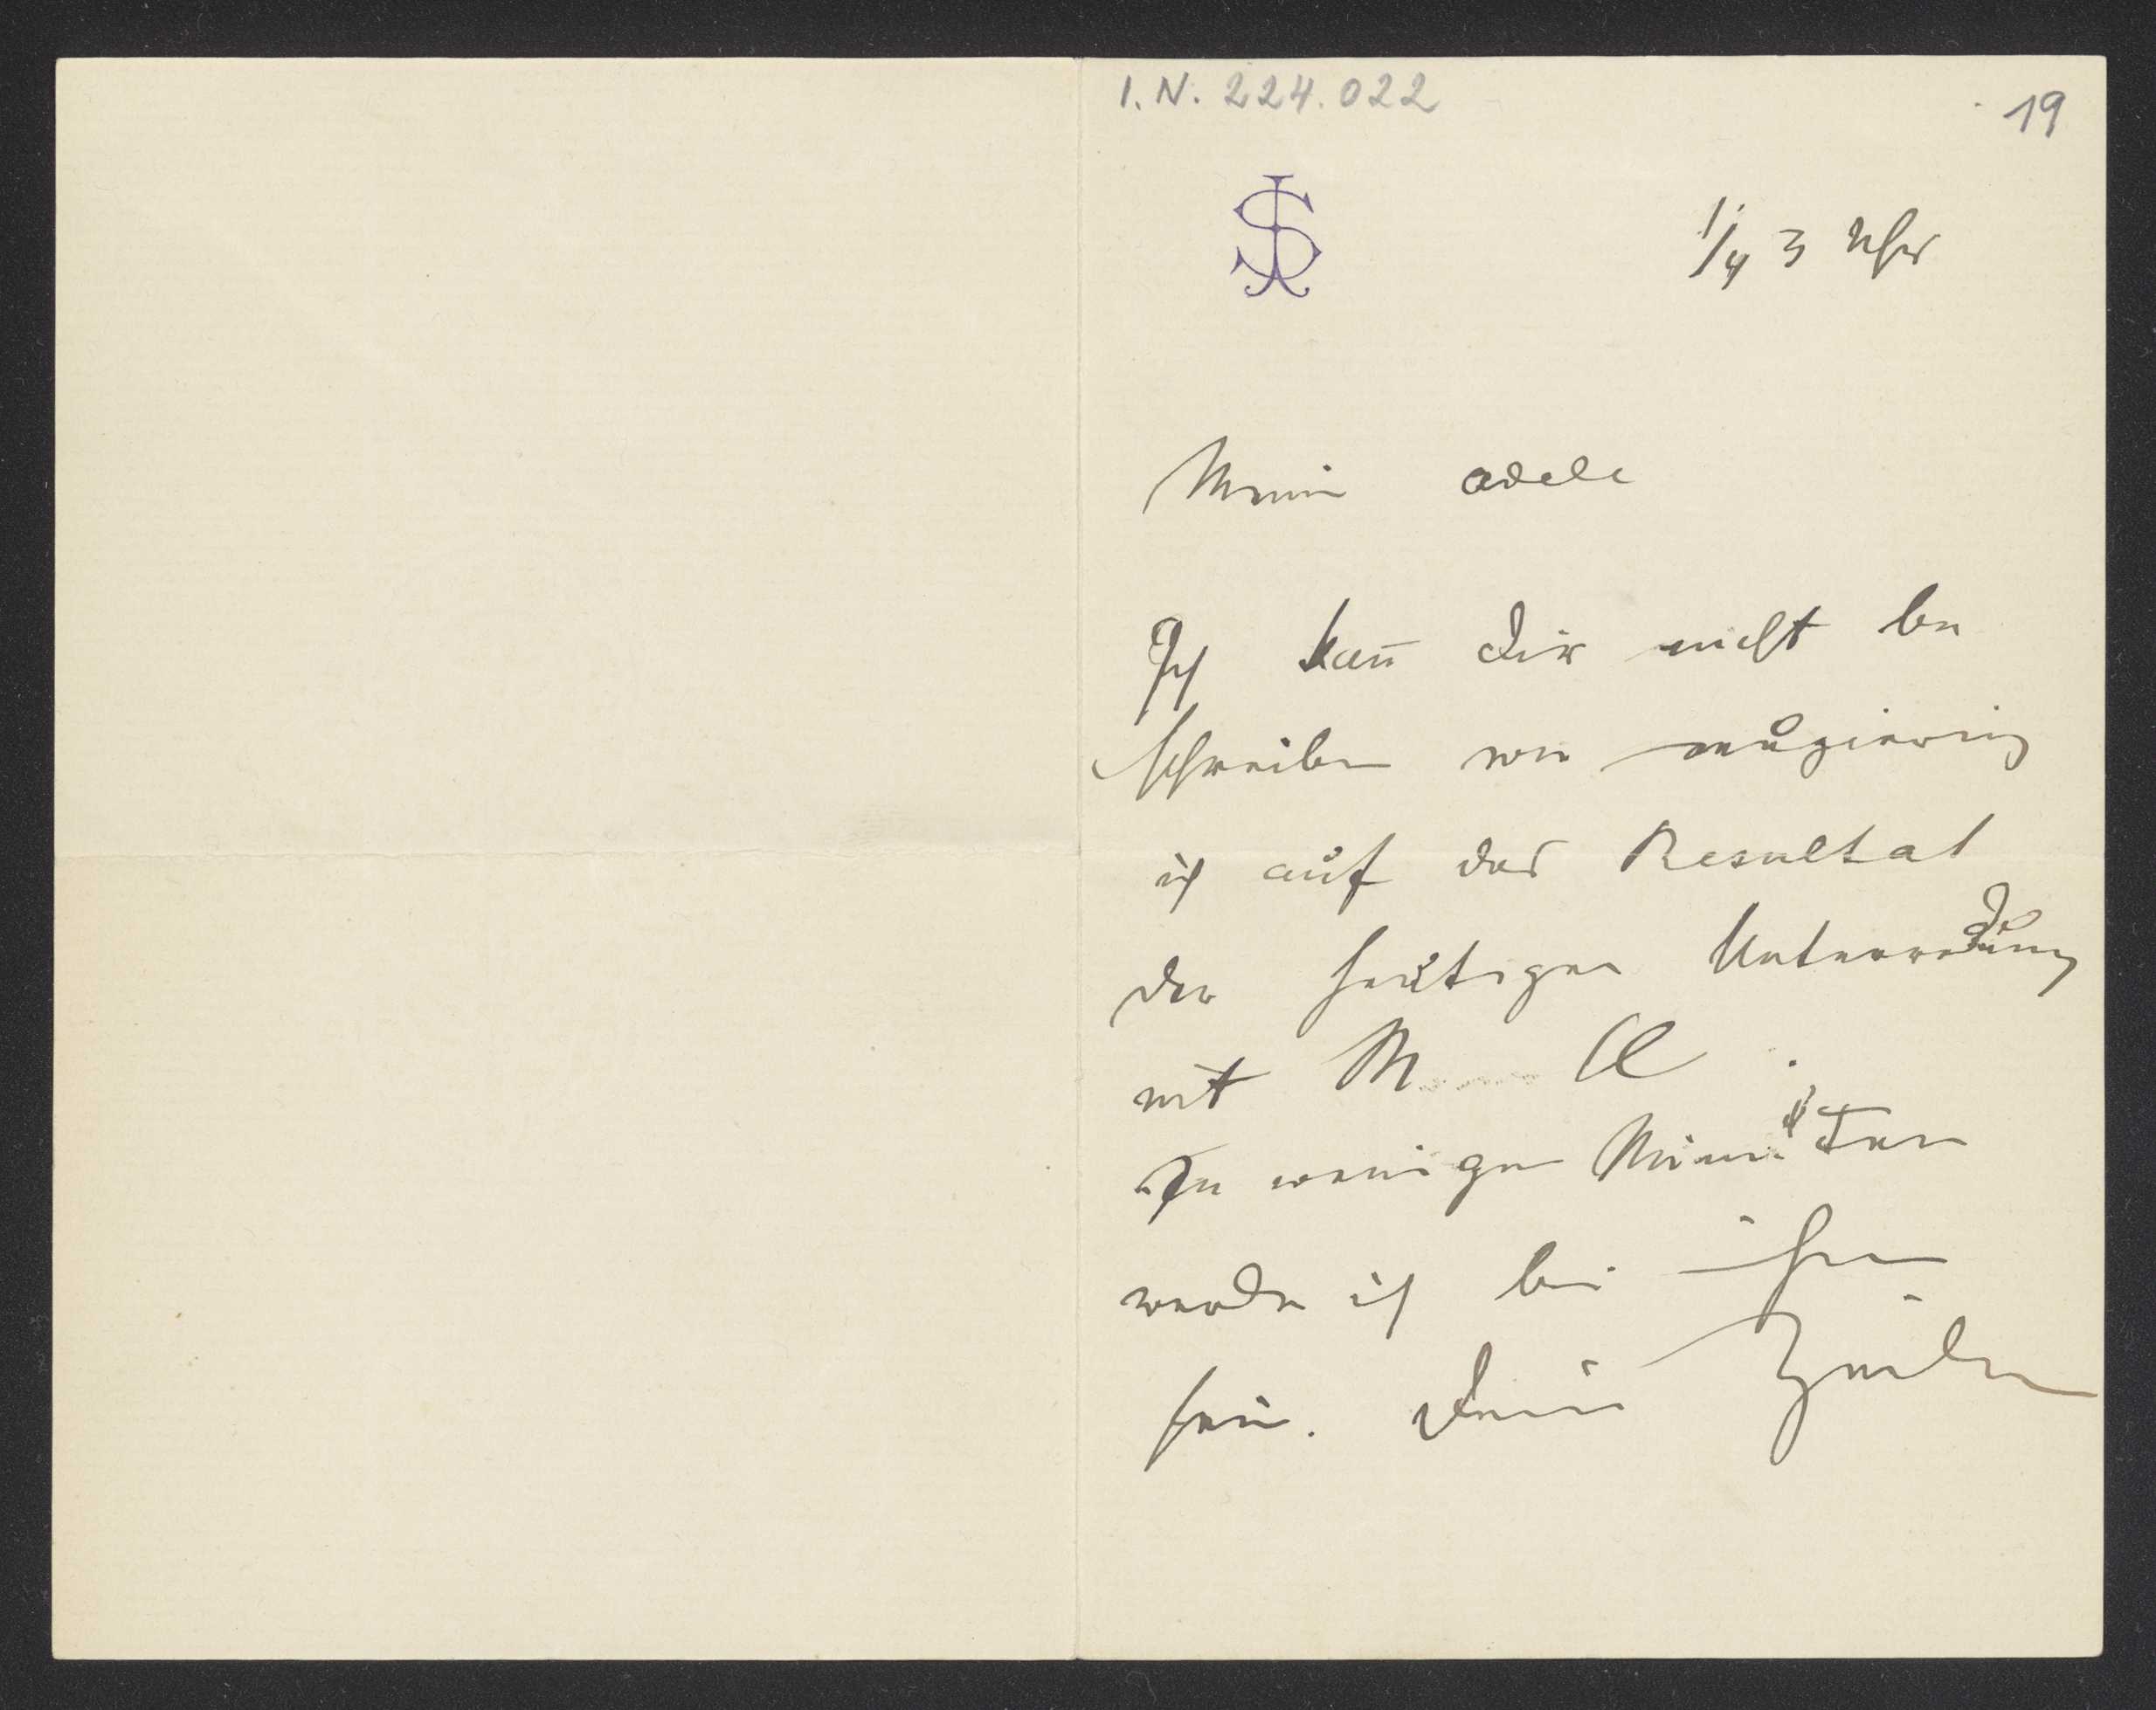 I.N. 224.022
19
JS
1/4 3 Uhr
Meine Adele
Ich kan̄ Dir nicht be
schreiben wie neugierig
ich auf das Resultat
der heutigen Unterredung
mit M Cl .
In wenigen Minuten
werde ich bei ihm
sein. Dein